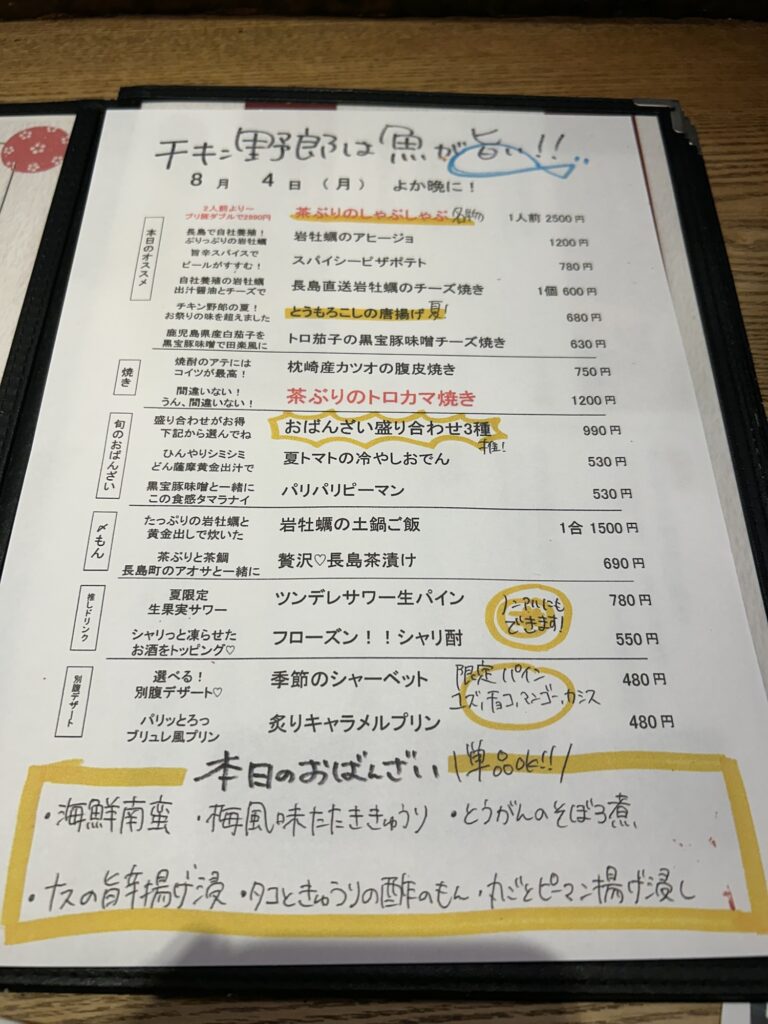 チキン野郎は魚が旨い!!
8月 4日（月） よか晩に！
本日のオススメ
2人前より～
ブリ豚ダブルで2890円
茶ぶりのしゃぶしゃぶ 名物 1人前 2500円
長島で自社養殖！
ぷりっぷりの岩牡蠣
岩牡蠣のアヒージョ 1200円
旨辛スパイスで
ビールがすすむ！
スパイシーピザポテト 780円
自社養殖の岩牡蠣
出汁醤油とチーズで
長島直送岩牡蠣のチーズ焼き 1個 600円
チキン野郎の夏！
お祭りの味を超えました
とうもろこしの唐揚げ 夏! 680円
鹿児島県産白茄子を
黒宝豚味噌で田楽風に
トロ茄子の黒宝豚味噌チーズ焼き 630円
焼き
焼酎のアテには
コイツが最高！
枕崎産カツオの腹皮焼き 750円
間違いない！
うん、間違いない！
茶ぶりのトロカマ焼き 1200円
旬のおばんざい
盛り合わせがお得
下記から選んでね
おばんざい盛り合わせ3種 推! 990円
ひんやりシミシミ
どん薩摩黄金出汁で
夏トマトの冷やしおでん 530円
黒宝豚味噌と一緒に
この食感タマラナイ
パリパリピーマン 530円
〆もん
たっぷりの岩牡蠣と
黄金出しで炊いた
岩牡蠣の土鍋ご飯 1合 1500円
茶ぶりと茶鯛
長島町のアオサと一緒に
贅沢♡長島茶漬け 690円
推しドリンク
夏限定
生果実サワー
ツンデレサワー生パイン 780円
ノンアルにも
できます!
シャリっと凍らせた
お酒をトッピング♡
フローズン！！シャリ酎 550円
別腹デザート
選べる！
別腹デザート♡
季節のシャーベット 480円
限定 パイン
ユズ,チョコ,マンゴー,カシス
パリッとろっ
ブリュレ風プリン
炙りキャラメルプリン 480円
本日のおばんざい \単品OK!!/
・海鮮南蛮 ・梅風味たたききゅうり ・とうがんのそぼろ煮
・ナスの旨辛揚げ浸 ・タコときゅうりの酢のもん ・丸ごとピーマン揚げ浸し